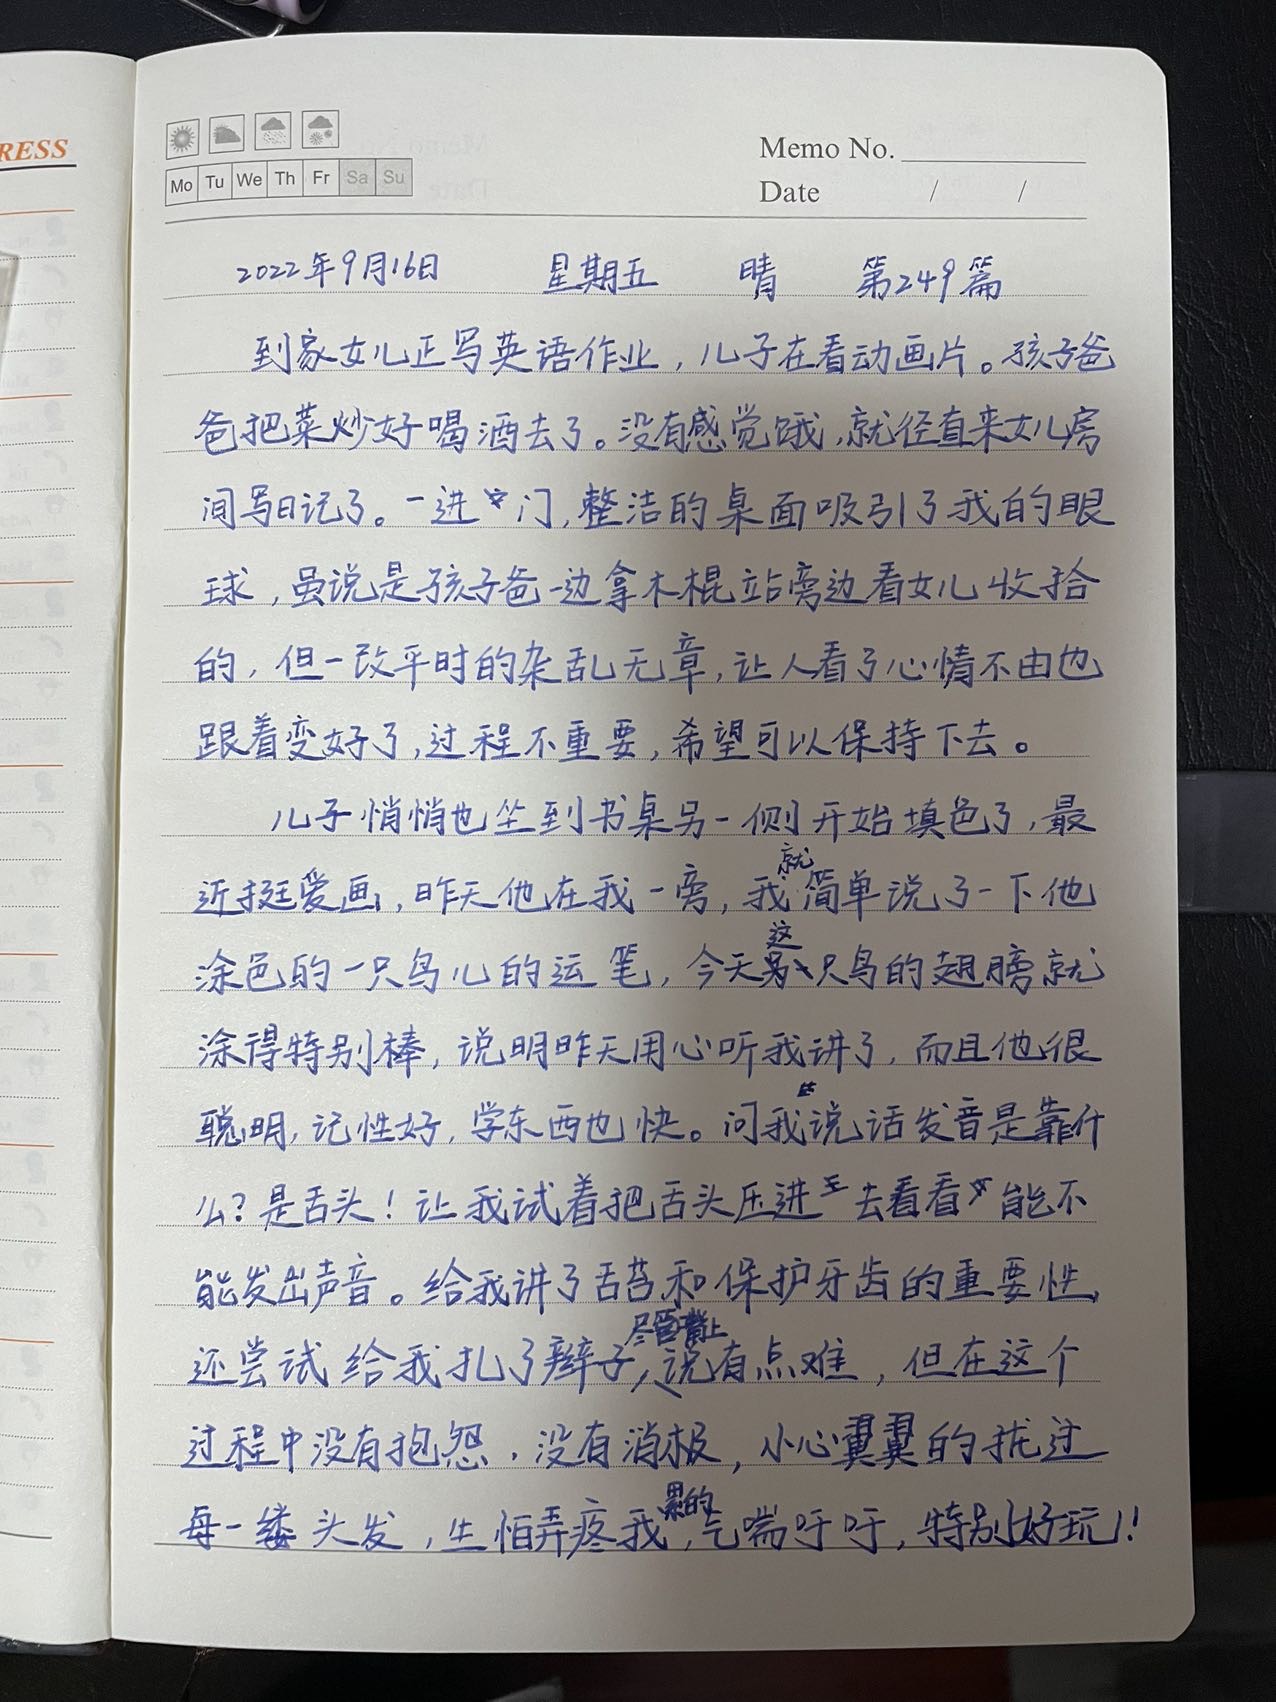 RESS
Memo No.
Mo Tu We Th Fr Sa Su
Date / /
2022年9月16日 星期五 晴 第249篇
到家女儿正写英语作业，儿子在看动画片。孩子爸
爸把菜炒好喝酒去了。没有感觉饿，就径直来女儿房
间写日记了。一进门，整洁的桌面吸引了我的眼
球，虽说是孩子爸一边拿木棍站旁边看女儿收拾
的，但一改平时的杂乱无章，让人看了心情不由也
跟着变好了，过程不重要，希望可以保持下去。
儿子悄悄也坐到书桌另一侧开始填色了，最
近挺爱画，昨天他在我一旁，我就简单说了一下他
涂色的一只鸟儿的运笔，今天这只鸟的翅膀就
涂得特别棒，说明昨天用心听我讲了，而且他很
聪明，记性好，学东西也快。问我说话发音是靠什
么？是舌头！让我试着把舌头压进去看看能不
能发出声音。给我讲了舌苔和保护牙齿的重要性，
还尝试给我扎了辫子，尽管嘴上说有点难，但在这个
过程中没有抱怨，没有消极，小心翼翼的拢过
每一缕头发，生怕弄疼我，累的气喘吁吁，特别好玩！